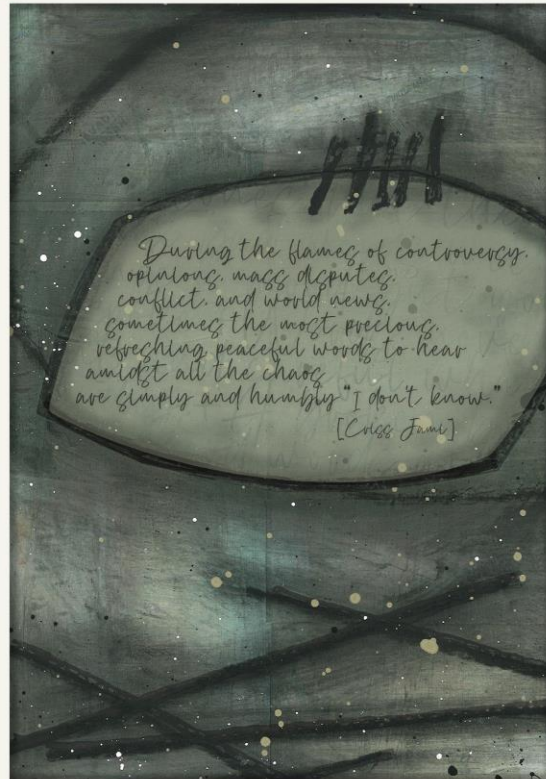 During the flames of controversy,
opinions, mass disputes,
conflict, and world news,
sometimes the most precious,
refreshing, peaceful words to hear
amidst all the chaos
are simply and humbly "I don't know."
[Criss Jami]